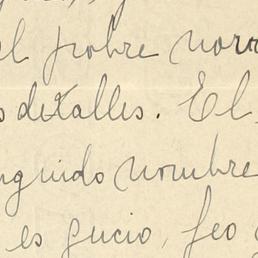 el pobre norr
s detalles. El
nguido nombre
es sucio, feo